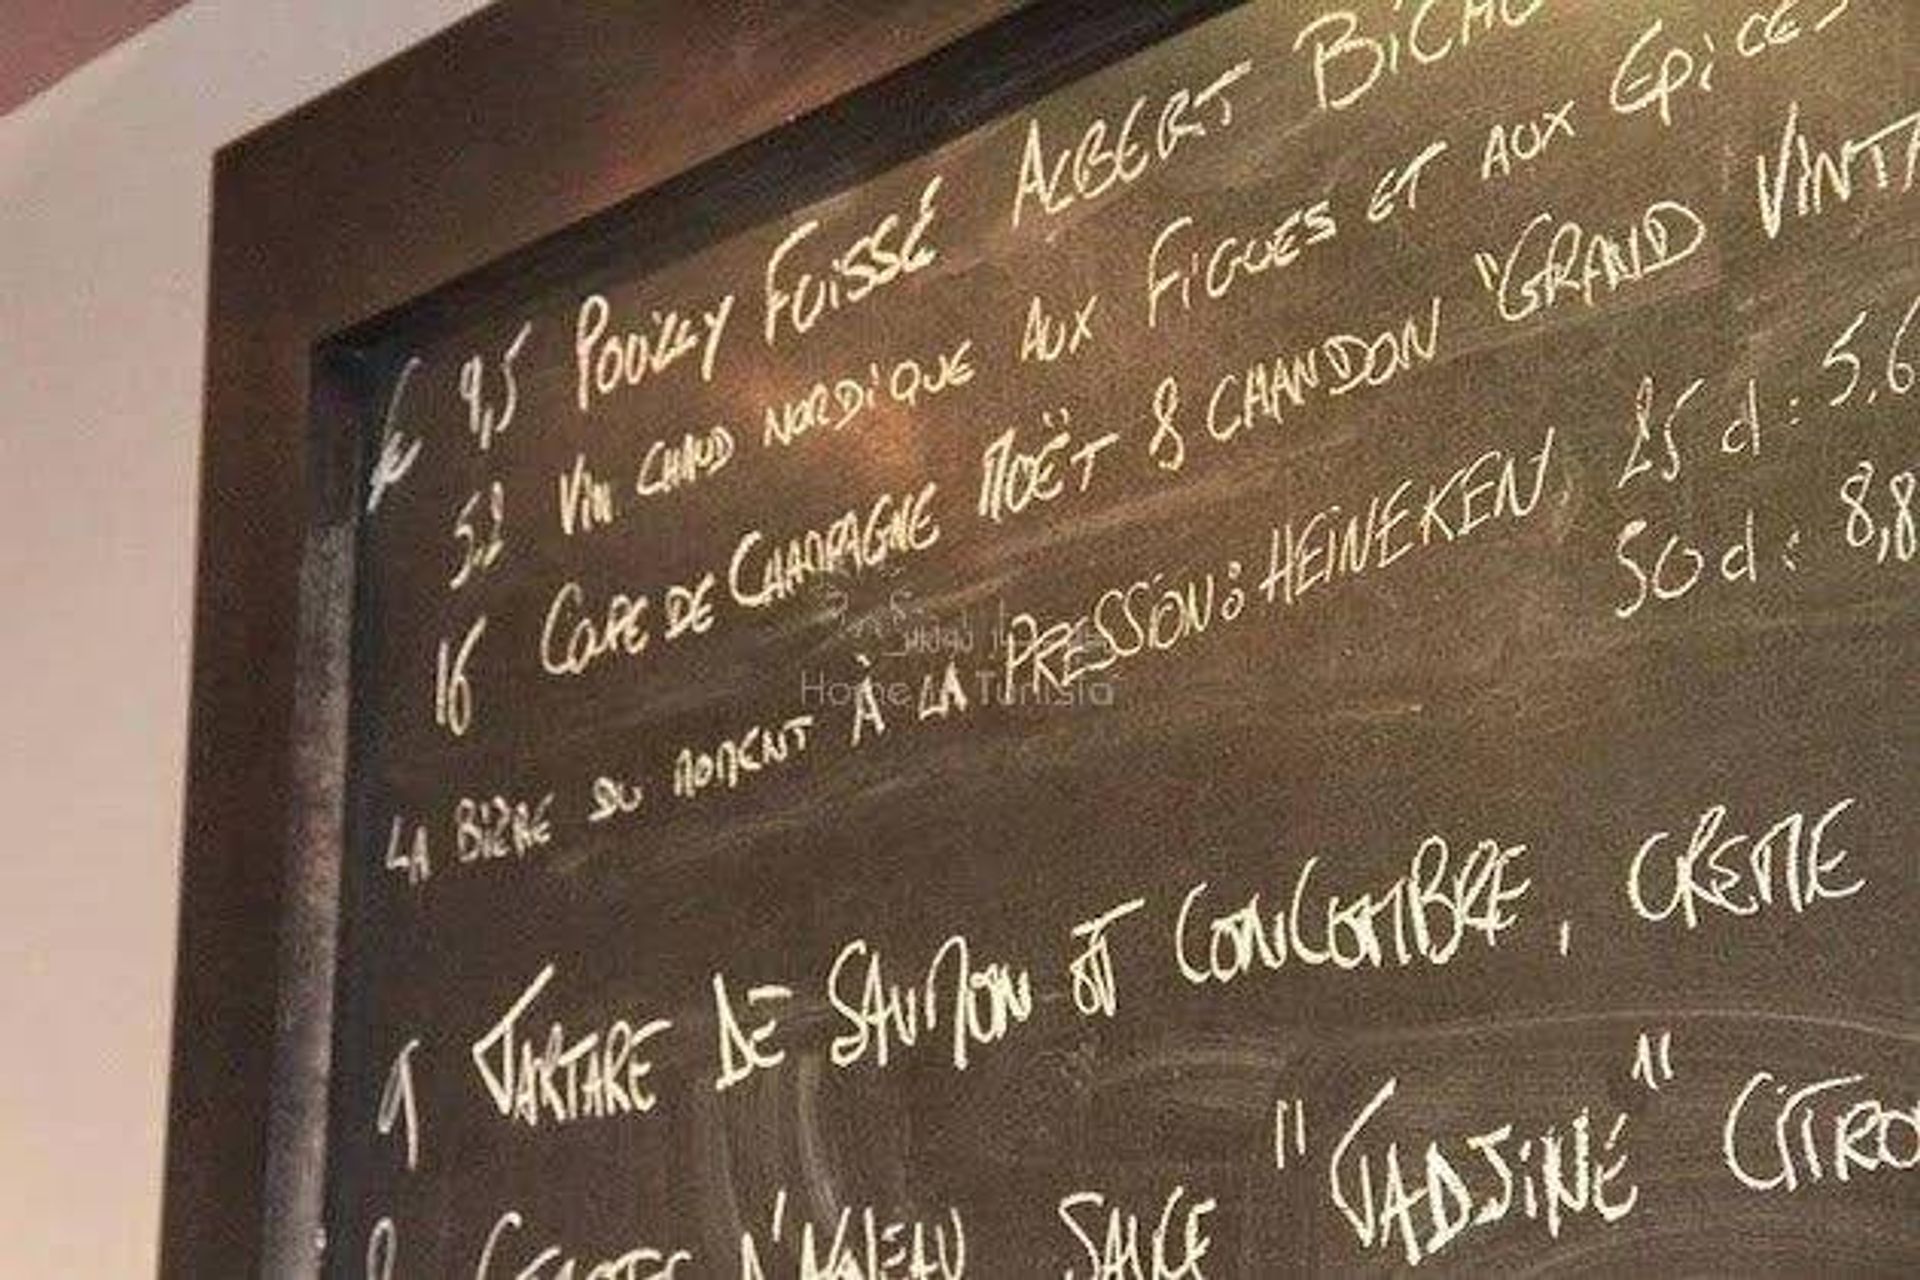 € 9,5 POUILLY FUISSÉ ALBERT BICHO
5,2 VIN CHAUD NORDIQUE AUX FIGUES ET AUX EPICES
16 COUPE DE CHAMPAGNE MOËT & CHANDON "GRAND VINTA
LA BIÈRE DU MOMENT À LA PRESSION: HEINEKEN, 25 d: 5,6
50 d: 8,8
Home in Tunisia
1 TARTARE DE SAUMON ET CONCOMBRE, CREME
D'AGNEAU SAUCE "TADJINÉ" CITRO